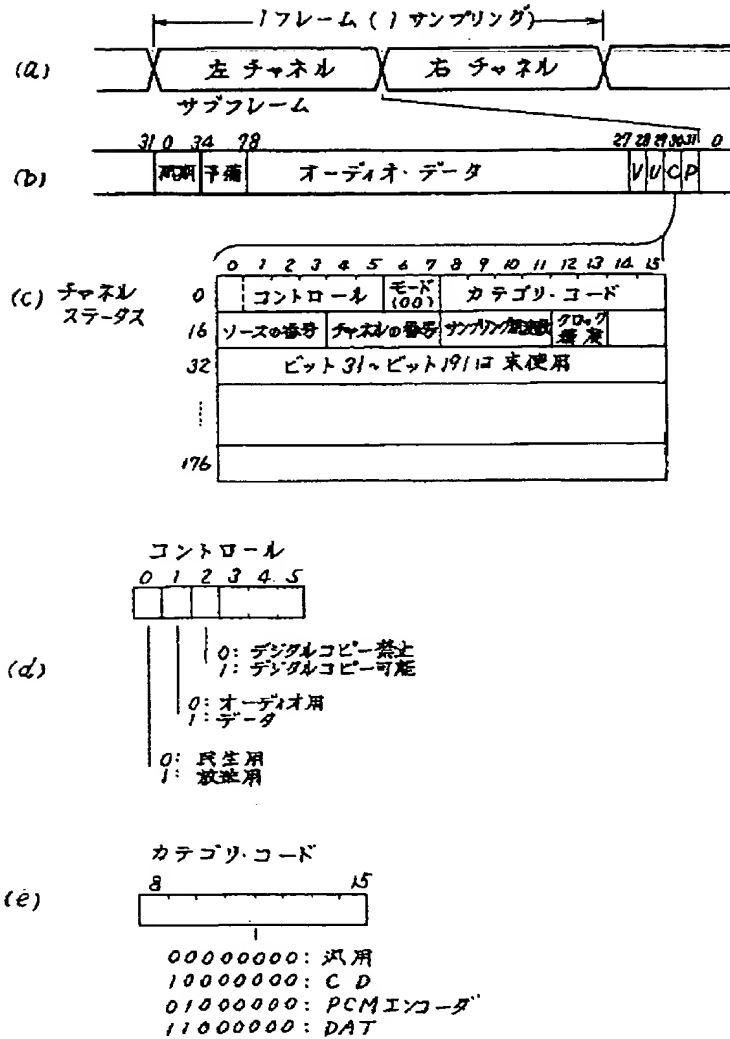 1フレーム(1サンプリング)
(a) 左チャネル 右チャネル
サブフレーム
31 0 34 78 27 28 29 30 31 0
(b) 同期 予備 オーディオ・データ V U C P
0 1 2 3 4 5 6 7 8 9 10 11 12 13 14 15
(c) チャネルステータス 0 コントロール モード(00) カテゴリ・コード
16 ソースの番号 チャネルの番号 サンプリング周波数 クロック精度
32 ビット31~ビット191は未使用
176
コントロール
0 1 2 3 4 5
(d)
0: デジタルコピー禁止
1: デジタルコピー可能
0: オーディオ用
1: データ
0: 民生用
1: 放送用
カテゴリ・コード
8 15
(e)
00000000: 汎用
10000000: CD
01000000: PCMエンコーダ
11000000: DAT